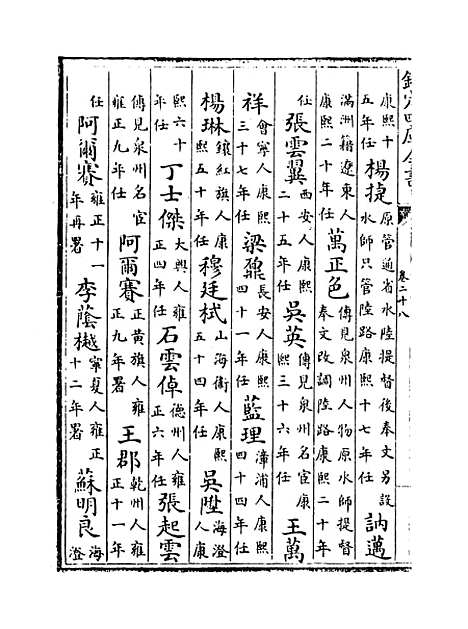 欽定四庫全書 卷二十八
康熙十五年任 楊捷 原管通省水陸提督後奉文另設水師只管陸路康熙十七年任 訥邁
滿洲籍遼東人康熙二十年任 萬正色 傳見泉州人物原水師提督奉文改調陸路康熙二十年
任 張雲翼 西安人康熙二十五年任 吳英 傳見泉州名宦康熙三十六年任 王萬
祥 會寧人康熙三十七年任 梁鼐 長安人康熙年任 藍理 漳浦人康熙四十四年任
楊琳 鑲紅旗人康熙五十年任 穆廷栻 山海衛人康熙五十四年任 吳陞 海澄人康
熙六十年任 丁士傑 大興人雍正四年任 石雲倬 德州人雍正六年任 張起雲
傳見泉州名宦雍正九年任 阿爾賽 正黃旗人雍正九年署 王郡 乾州人雍正十一年
任 阿爾賽 雍正十一年再署 李蔭樾 寧夏人雍正十二年署 蘇明良 海澄